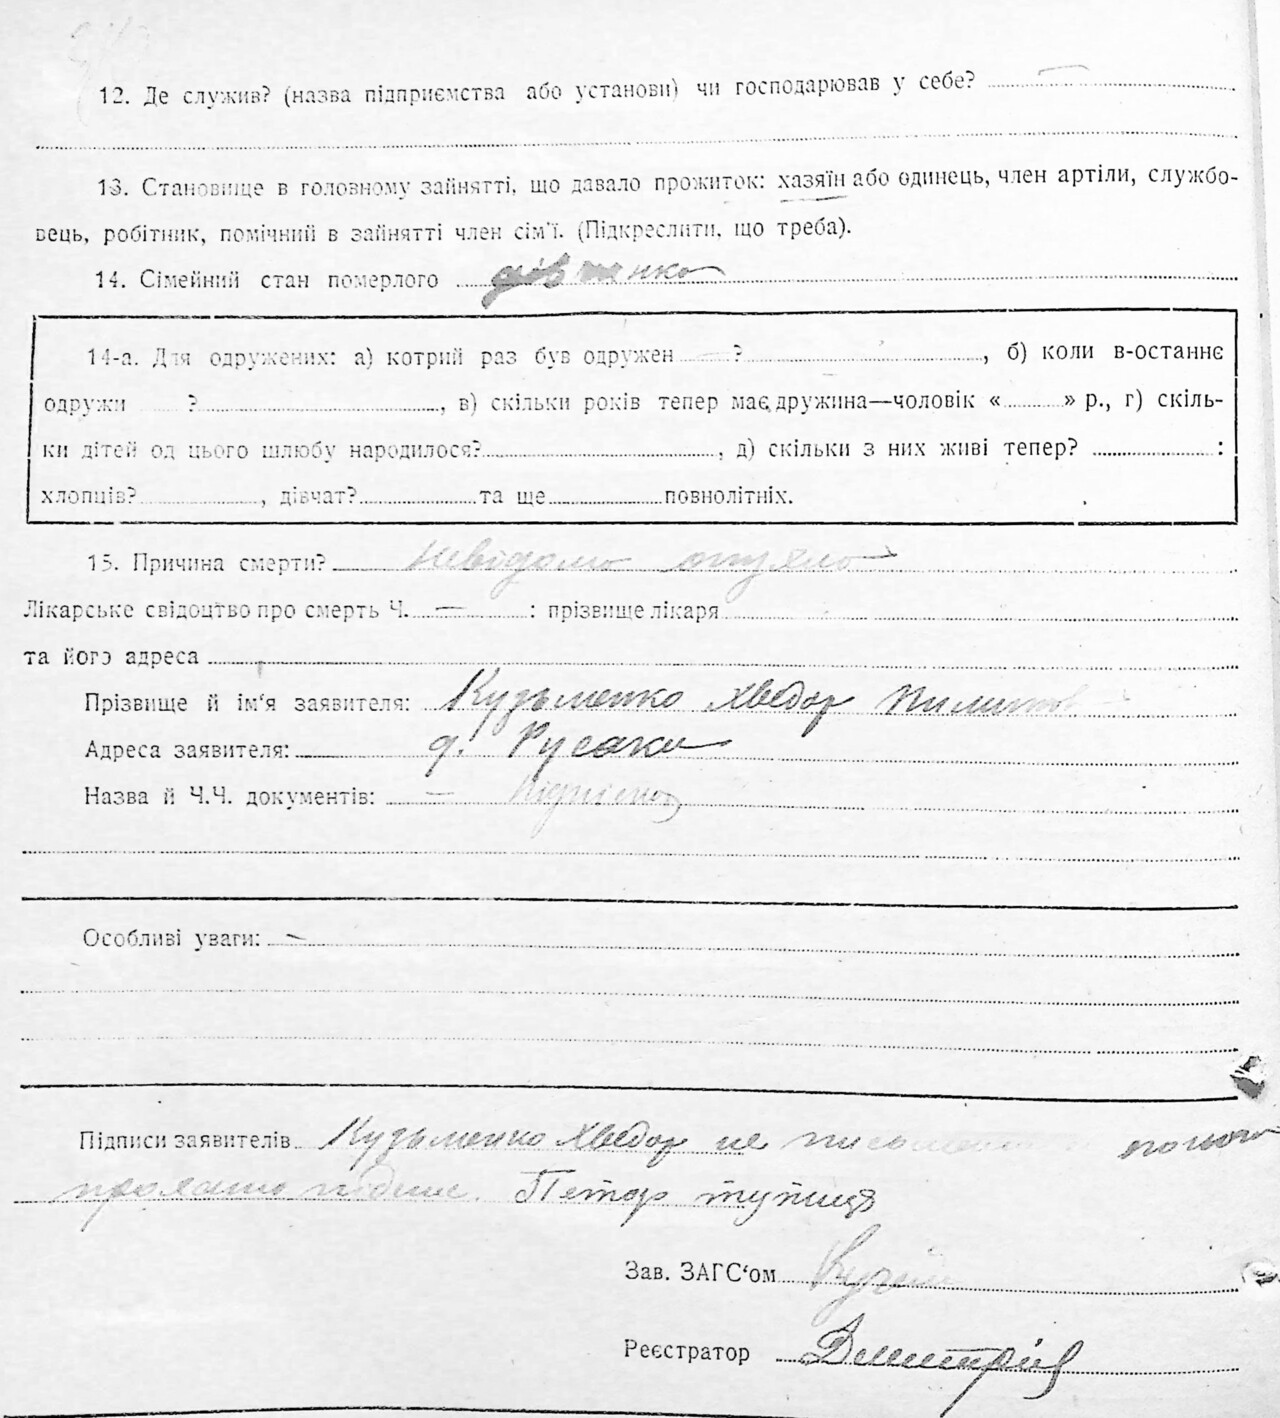 12. Де служив? (назва підприємства або установи) чи господарював у себе? —
13. Становище в головному зайнятті, що давало прожиток: хазяїн або одинець, член артіли, службо-
вець, робітник, помічний в зайнятті член сім'ї. (Підкреслити, що треба).
14. Сімейний стан померлого
14-а. Для одружених: а) котрий раз був одружен — ? , б) коли в-останнє
одружи ? , в) скільки років тепер має дружина—чоловік « » р., г) скіль-
ки дітей од цього шлюбу народилося? , д) скільки з них живі тепер? :
хлопців? , дівчат? та ще повнолітніх.
15. Причина смерти? Невідомо
Лікарське свідоцтво про смерть Ч. — : прізвище лікаря
та його адреса
Прізвище й ім'я заявителя: Кузьменко Хведор Пилипов
Адреса заявителя: д. Русаки
Назва й Ч.Ч. документів: —
Особливі уваги: —
Підписи заявителів Кузьменко Хведор не
Петор тупиця
Зав. ЗАГС'ом
Реєстратор Дмитрів